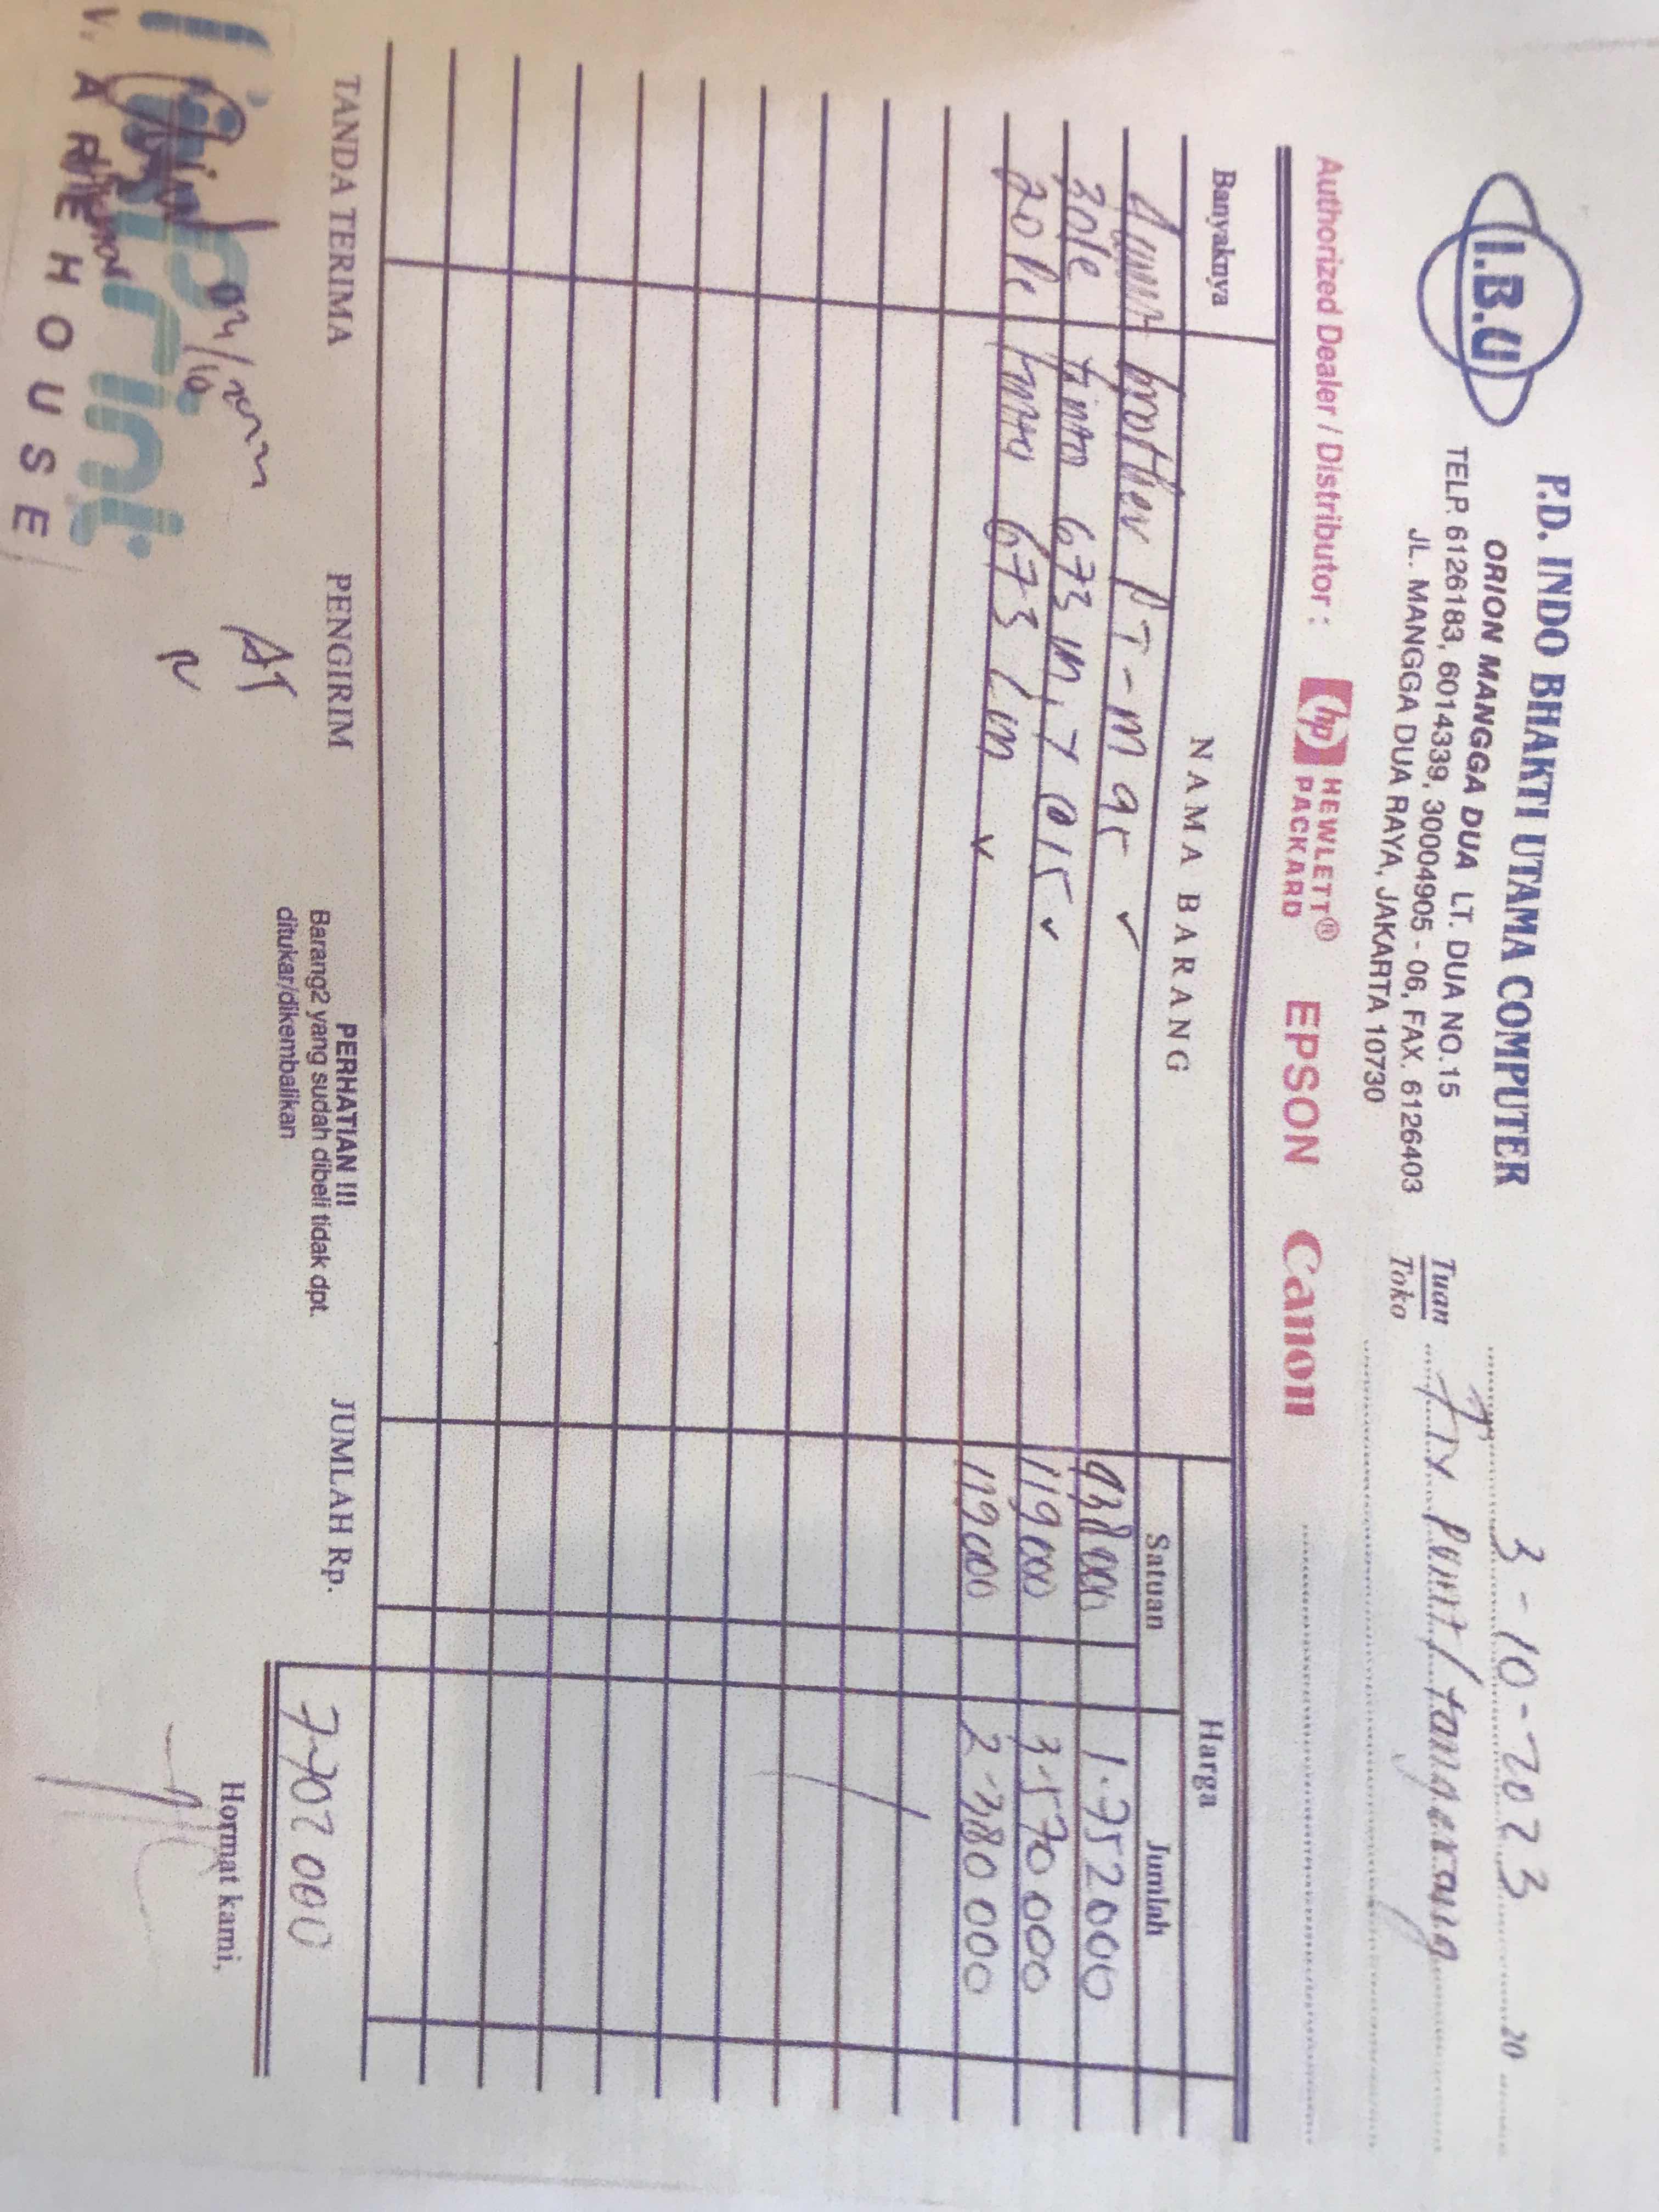 I.B.U
P.D. INDO BHAKTI UTAMA COMPUTER
ORION MANGGA DUA LT. DUA NO. 15
TELP. 6126183, 6014339, 30004905 - 06, FAX. 6126403
JL. MANGGA DUA RAYA, JAKARTA 10730
3-10-2023 20
Tuan
Toko
Print / tangerang
Authorized Dealer / Distributor : hp HEWLETT® PACKARD EPSON Canon
Banyaknya NAMA BARANG Harga
Satuan Jumlah
brother PT-M95 ✓ 938000 1.752000
tinta 673 119000 3.570000
20 tinta 673 Lm 119000 2.380000
TANDA TERIMA PENGIRIM JUMLAH Rp. 7.702000
PERHATIAN !!!
Barang2 yang sudah dibeli tidak dpt.
ditukar/dikembalikan
Hormat kami,
print
WAREHOUSE